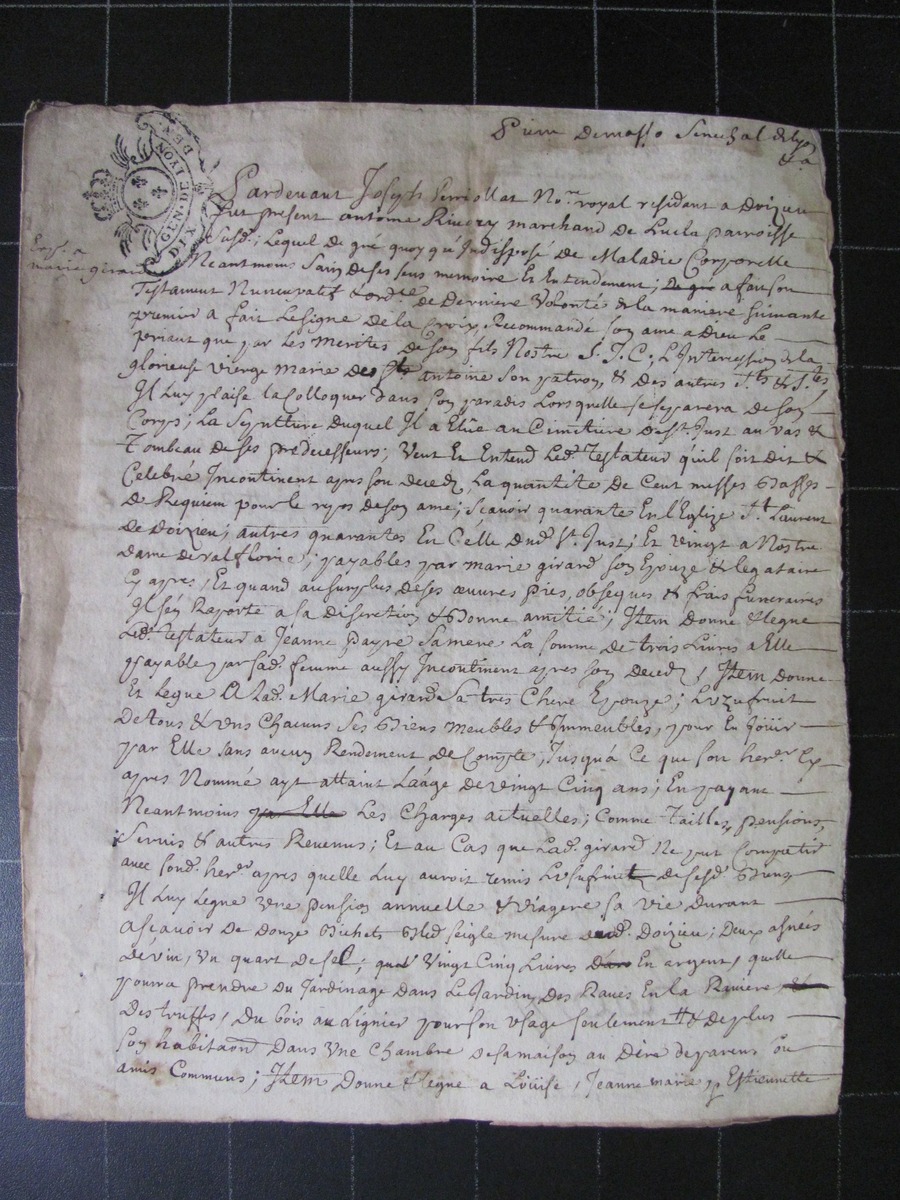 Pierre Demasso Senechal de Lyon
&a
GEN. DE LYON
DIX DEN.
Exp. a
marie girard
Pardevant Joseph No.re royal residant a Doizieu
fut present antoine Rivory marchand de Lucla parroisse
Susd.; Lequel de gré quoy qu'Indisposé de Maladie Corporelle
Neantmoins Sain de ses sens memoire Et Entendement; De gré a fait son
Testament Nuncupatif & ord.re de Derniere Volonté de la maniere suivante
premier a fait Le signe de la Croix, Recommandé son ame a Dieu Le
priant que par Les merites de son fils Nostre S. J. C. L'Intercession de la
glorieuse vierge marie de St. antoine son patron, & des autres S.ts & S.tes
Il Luy plaise la Colloquer dans son paradis Lorsquelle se separera de son
Corps; La Sepulture Duquel Il a Elüe au Cimitiere de St. Just au vas &
Tombeau de ses predecesseurs; Veut Et Entend Led. Testateur qu'il soit dit &
Celebré Incontinent apres son Deced, La quantité de Cent messes basses
De Requiem pour le repos de son ame; Scavoir quarante En L'Eglize St. Laurent
de Doizieu; autres quarantes En Celle dud. St. Just; Et vingt a Nostre
dame de valflorie; payables par marie girard son Epouze & legataire
Cy apres; Et quand au surplus de ses œuvres pies, obseques & frais funeraires
Il s'en Raporte a sa Discretion & Bonne amitié; Item Donne & legue
Led. Testateur a Jeanne payre Sa mere La somme de trois Livres a Elle
payable par sad. femme aussy Incontinent apres son Deced; Item Donne
Et Legue A Lad. Marie girard Sa tres Chere Epouze; L'uzufruit
De tous & uns Chacuns Ses Biens meubles & Immeubles, pour En Jöüir
par Elle sans aucun Rendement de Compte, Jusqu'à Ce que son her.er Cy
apres Nommé ayt attaint L'aage de vingt Cinq ans; En payant
Neantmoins par Elle Les Charges actuelles; Comme Tailles, pensions,
Servis & autres Revenus; Et au Cas que Lad. girard Ne put Compatir
avec sond. her.er apres quelle Luy auroit remis L'usufruit de sesd. Biens
Il Luy Legue Une pension annuelle & viagere sa vie Durant
a scavoir de Douze Bichets Bled seigle mesure dud. Doizieu; Deux asnées
de vin, un quart de sel; Vingt Cinq Livres En argent, quelle
pourra prendre du Jardinage dans Le Jardin, des Raves En la Riviere, &
Des truffes, Du bois au pour son usage seulement & de plus
son habitaon Dans une Chambre de sa maison au Dire de parens ou
amis Communs; Item Donne & legue a Loüise, Jeanne marie & Estiennette